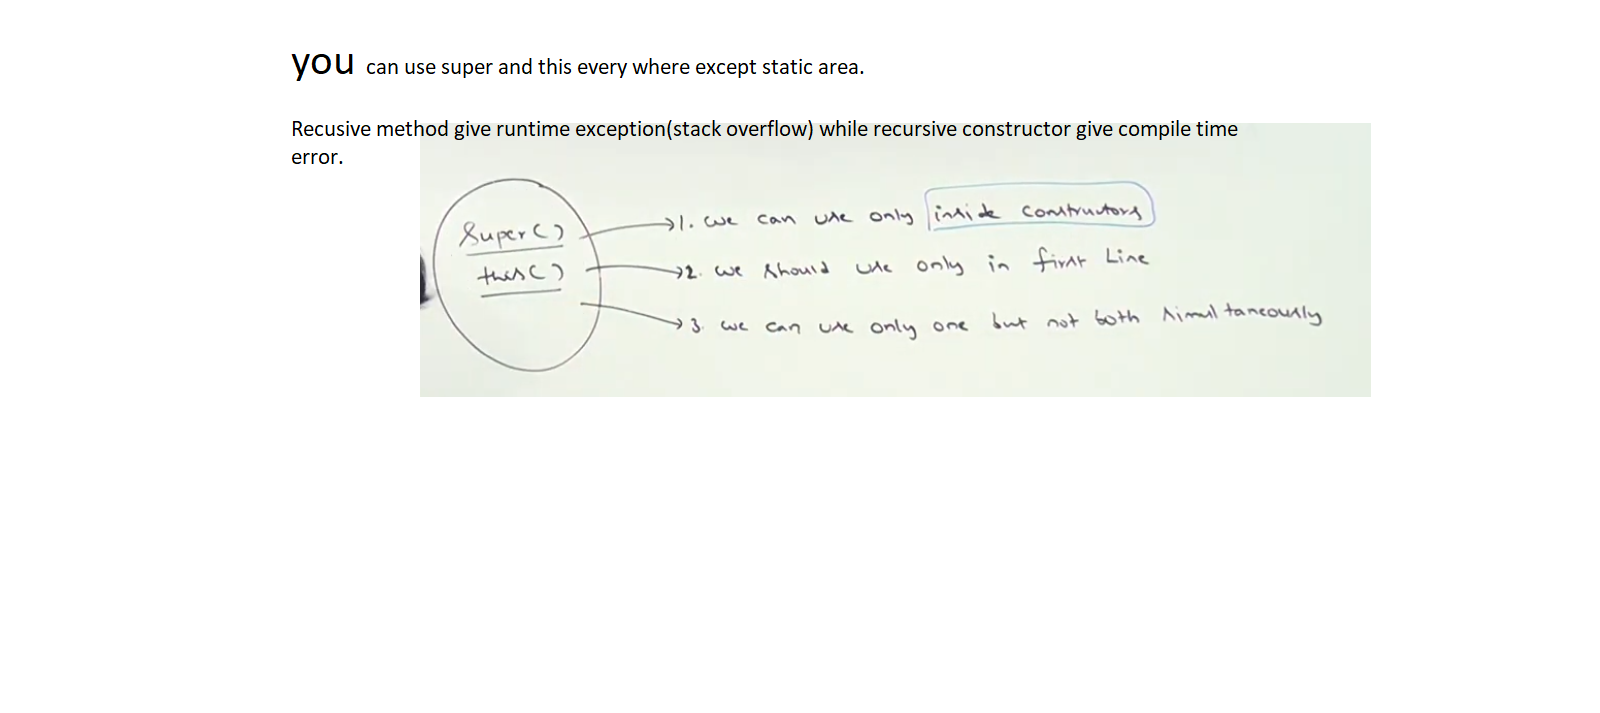 you can use super and this every where except static area.
Recusive method give runtime exception(stack overflow) while recursive constructor give compile time
error.
Super()
this()
1. we can use only inside constructors
2. we should use only in first Line
3. we can use only one but not both simultaneously